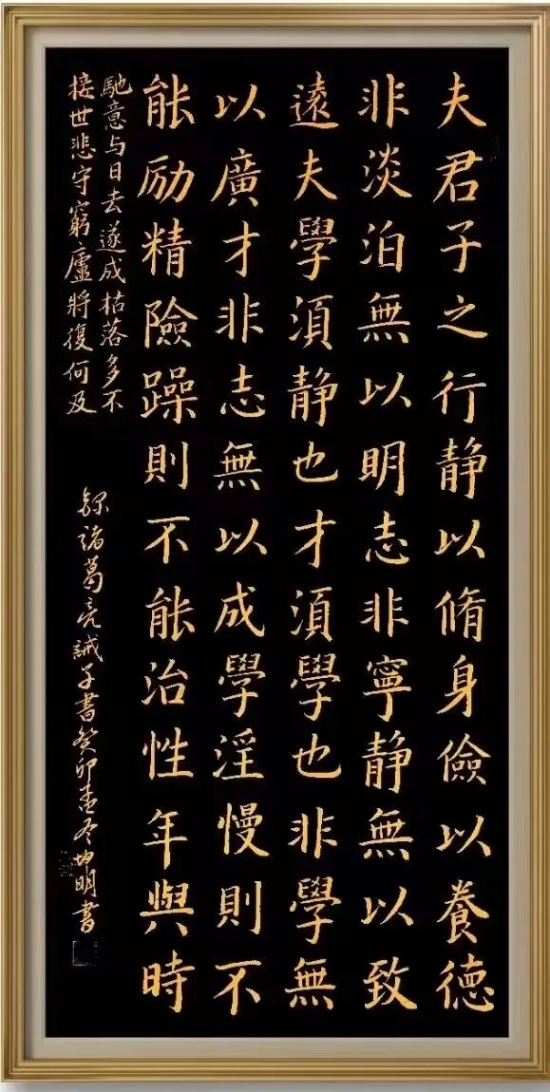 夫君子之行静以脩身儉以養德
非淡泊無以明志非寧静無以致
遠夫學須静也才須學也非學無
以廣才非志無以成學淫慢則不
能励精險躁則不能治性年與時
馳意与日去遂成枯落多不
接世悲守窮廬將復何及
錄諸葛亮誡子書癸卯孟冬坤明書